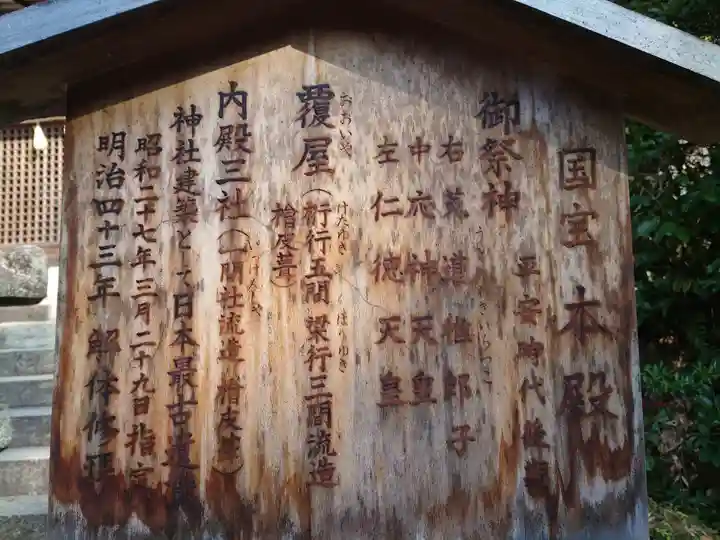 国宝本殿
平安時代後期
御祭神
右 菟道稚郎子
中 応神天皇
左 仁徳天皇
覆屋(桁行五間 梁行三間流造
おおいや けたゆき はりゆき
檜皮葺)
内殿三社(一間社流造 檜皮葺)
神社建築として日本最古遺構
昭和二十七年三月二十九日指定
明治四十三年 解体修理